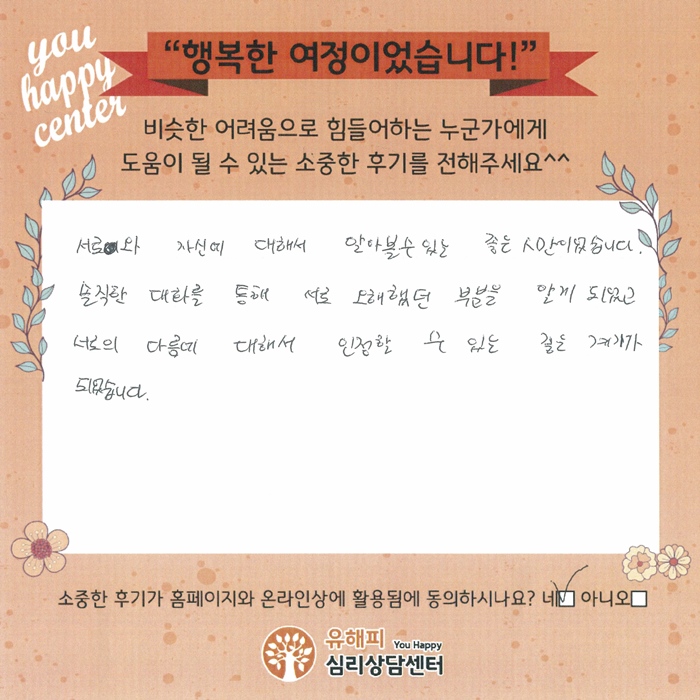 you
happy
center
“행복한 여정이었습니다!”
비슷한 어려움으로 힘들어하는 누군가에게
도움이 될 수 있는 소중한 후기를 전해주세요^^
서로와 자신에 대해서 알아볼수 있는 좋은 시간이었습니다.
솔직한 대화를 통해 서로 오해했던 부분을 알게 되었고
서로의 다름에 대해서 인정할 수 있는 좋은 계기가
되었습니다.
소중한 후기가 홈페이지와 온라인상에 활용됨에 동의하시나요? 네 아니오
유해피 You Happy
심리상담센터